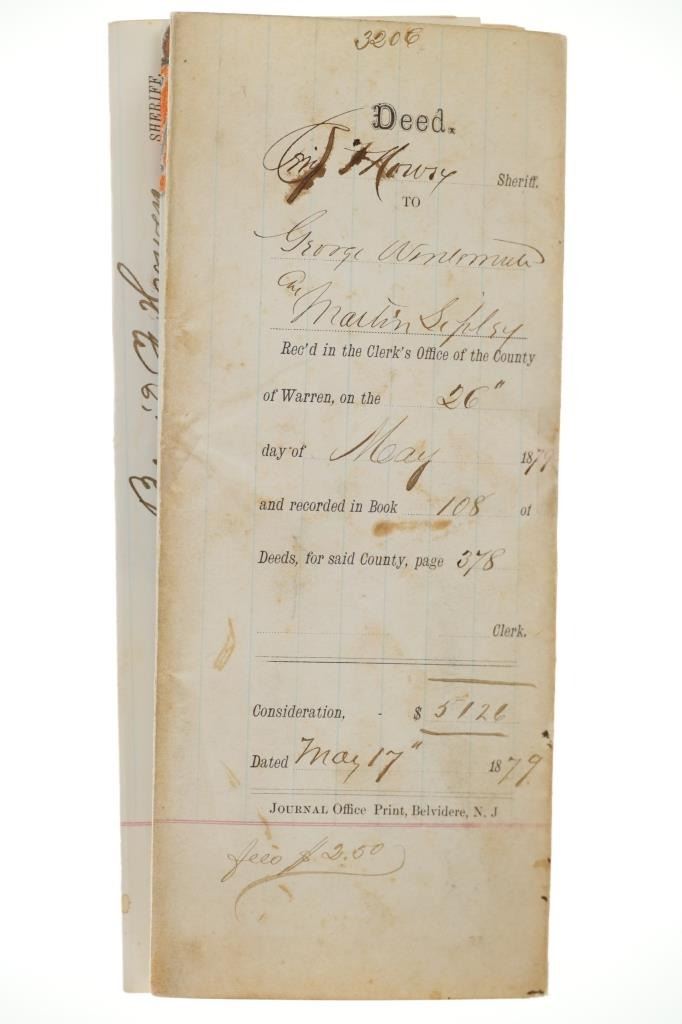 3206
Deed.
Sheriff.
TO
George Wintermute
and
Martin Sipley
Rec'd in the Clerk's Office of the County
of Warren, on the 26"
day of May 1879
and recorded in Book 108 of
Deeds, for said County, page 378
Clerk.
Consideration, - $ 5126
Dated May 17" 1879
JOURNAL Office Print, Belvidere, N. J
fees $ 2.50
SHERIFF.